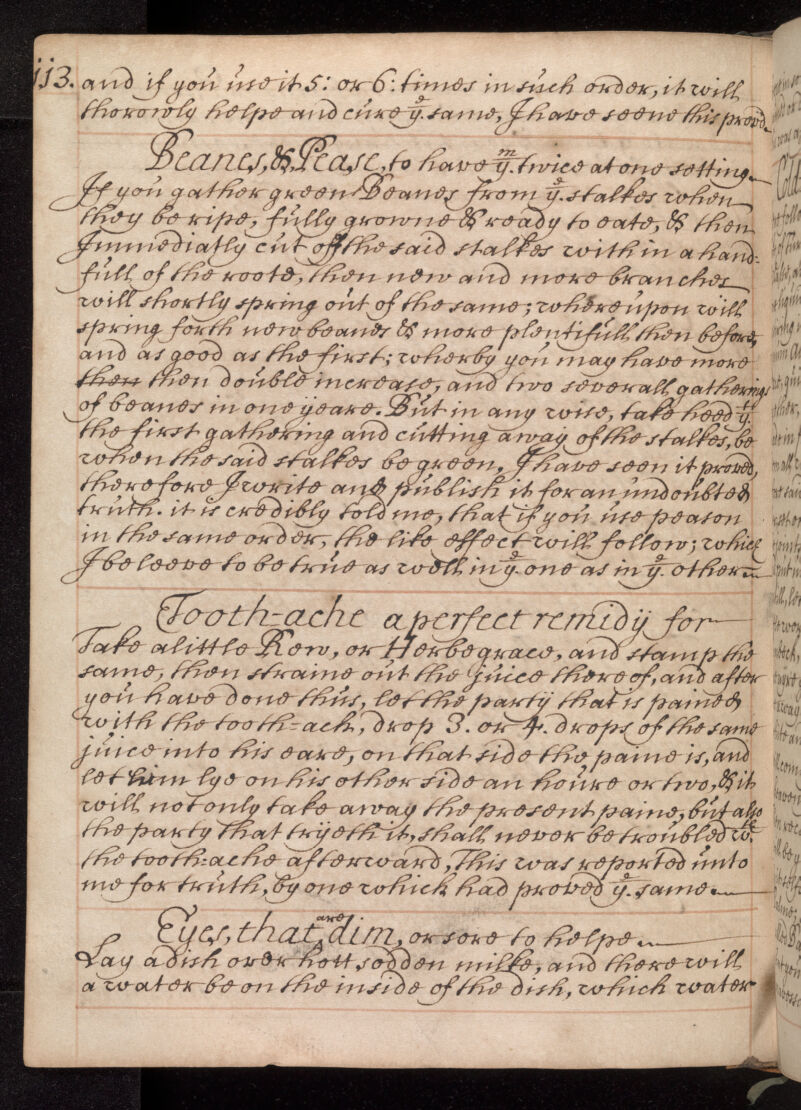 113. and if you use it 5: or 6: times in such order, it will
thorowly helpe and cure yͤ. same, I have seene this prov'd
Beanes, & Pease, to have yᵐ. twice at one setting
If you gather green Beanes from yͤ. stalkes when
they be ripe, fully growne & ready to eate, & then
Immediatly cut off the said stalkes within a hand=
full of the roote, then new and more branches
will shortly spring out of the same; whereupon will
spring forth new beanes & more plentifull then before,
and as good as the first; wherby you may have more
then then double increase, and two severall gatherings
of beanes in one yeare. But in any wise, take heed yᵗ.
the first gathering and cutting away of the stalkes, be
when the said stalkes be green, I have seen it proved,
therefore I write and publish it for an undoubted
truth. it is credibly told me, that if you use peason
in the same order, the like effect will follow; which
I beleeve to be true as well in yͤ. one as in yͤ. other
Tooth-ache a perfect remidÿ for
Take a little Rew, or Herbegrace, and stamp the
same, then straine out the juice thereof, and after
you have done thus, let the partÿ that is pained
with the tooth=ach, drop 3. or 4. drops of the same
juice into his eare, on that side the paine is, and
let him lye on his other side an houre or two, & it
will not only take away the present paine, but also
the party that trÿeth it, shall never be troubled wᵗʰ.
the tooth=ache afterward, this was reported unto
me for truth, by one which had proved yͤ. same
Eyes, that are dim, or sore to helpe
Lay a dish over hott sodden milke, and there will
a water be on the inside of the dish, which water